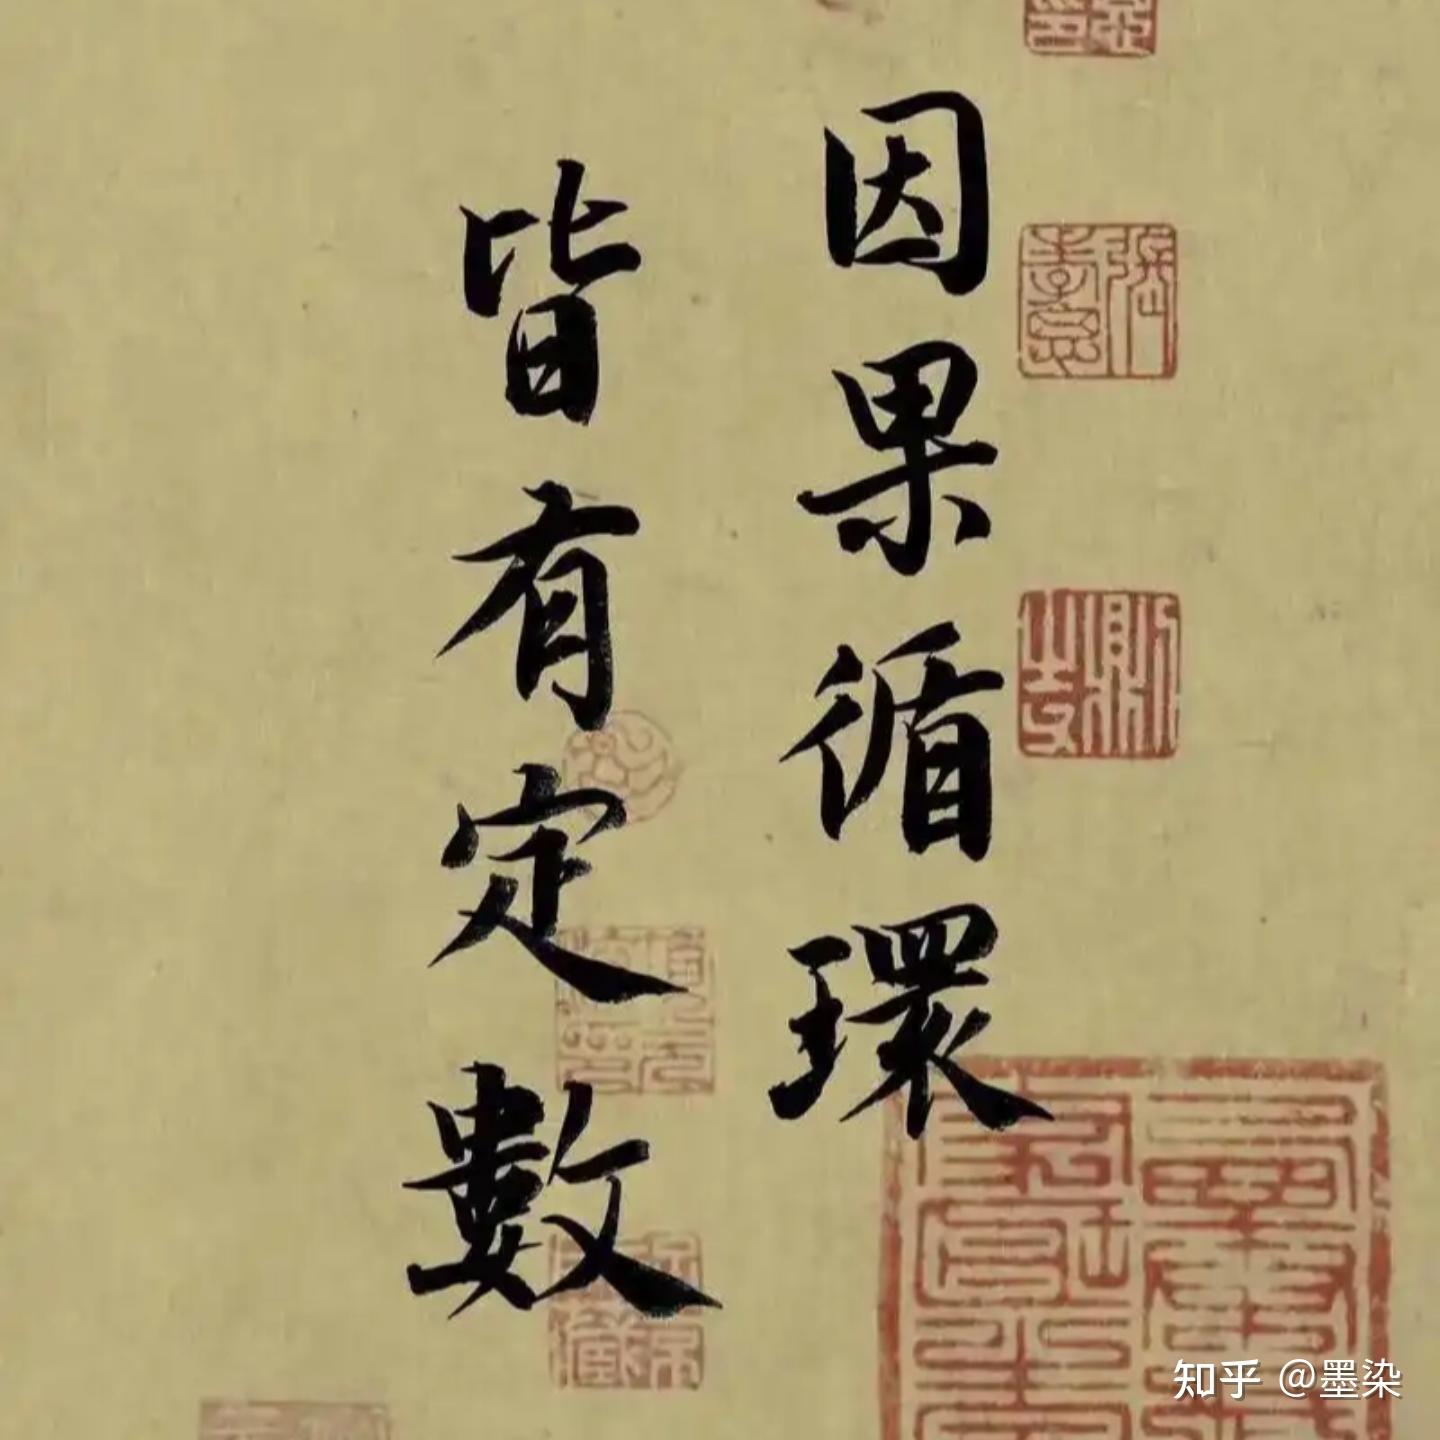 因果循環
皆有定數
知乎 @墨染